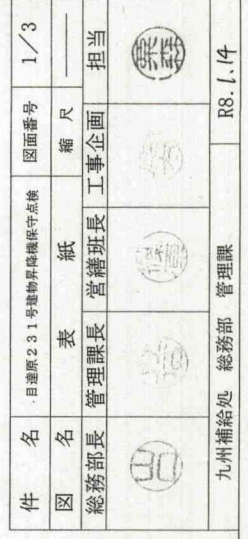 件名 目達原231号建物昇降機保守点検 図面番号 1/3
図名 表紙 縮尺 ——
総務部長 管理課長 営繕班長 工事企画 担当
九州補給処 総務部 管理課 R8.1.14